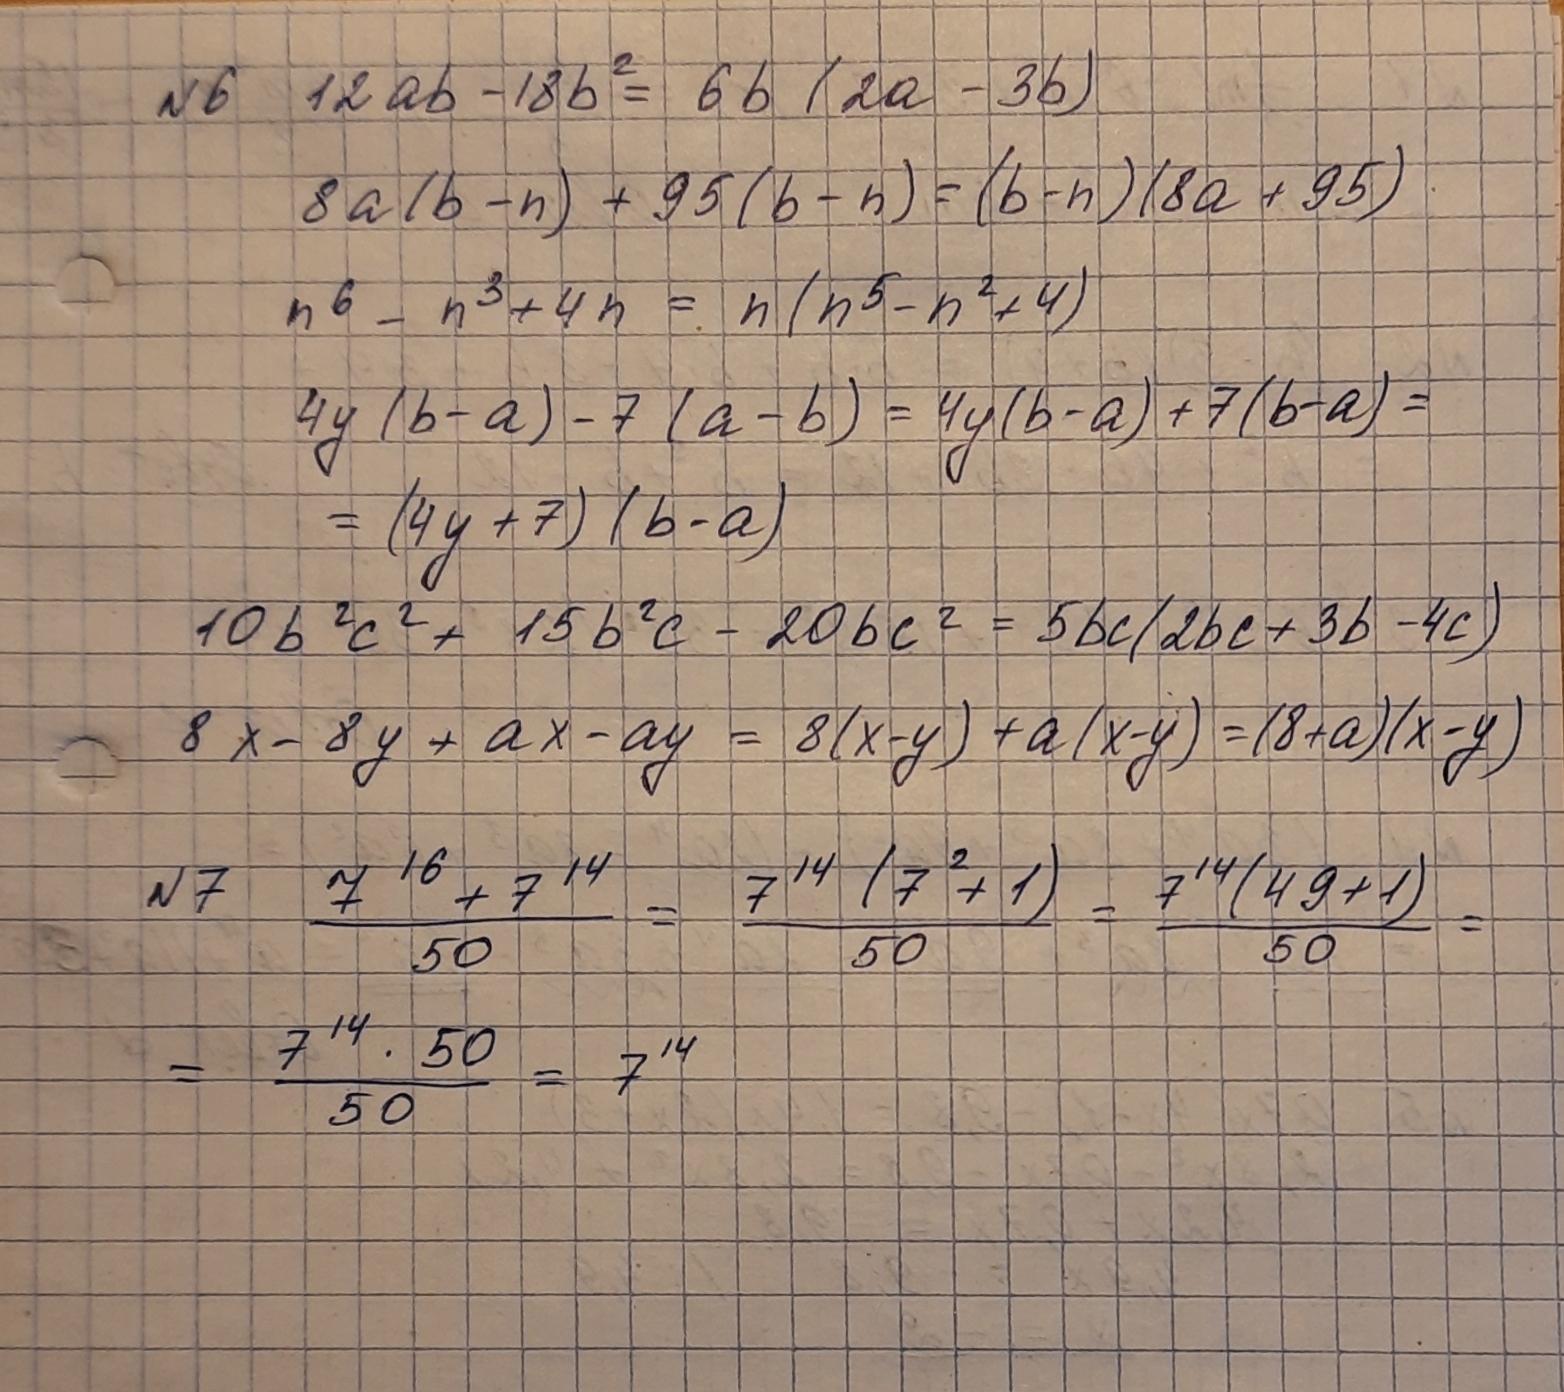 №6 12ab - 18b² = 6b (2a - 3b)
8a(b - n) + 95(b - n) = (b - n)(8a + 95)
n⁶ - n³ + 4n = n(n⁵ - n² + 4)
4y (b - a) - 7 (a - b) = 4y(b - a) + 7(b - a) =
= (4y + 7) (b - a)
10b²c² + 15b²c - 20bc² = 5bc(2bc + 3b - 4c)
8x - 8y + ax - ay = 8(x - y) + a(x - y) = (8 + a)(x - y)
№7 (7¹⁶ + 7¹⁴)/50 = (7¹⁴ (7² + 1))/50 = (7¹⁴(49 + 1))/50 =
= (7¹⁴ · 50)/50 = 7¹⁴